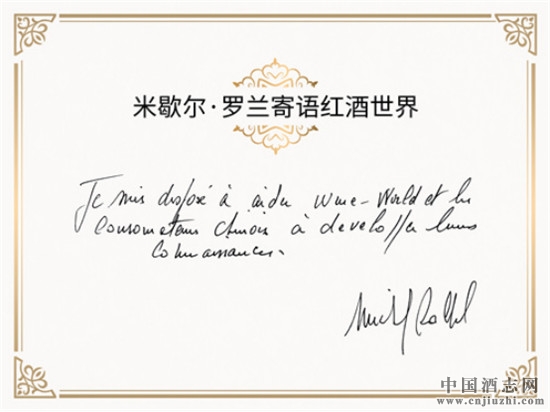 米歇尔·罗兰寄语红酒世界
Je suis disposé à aider Wine-World et les
Consommateurs chinois à développer leurs
connaissances.
中国酒志网
www.cnjiuzhi.com